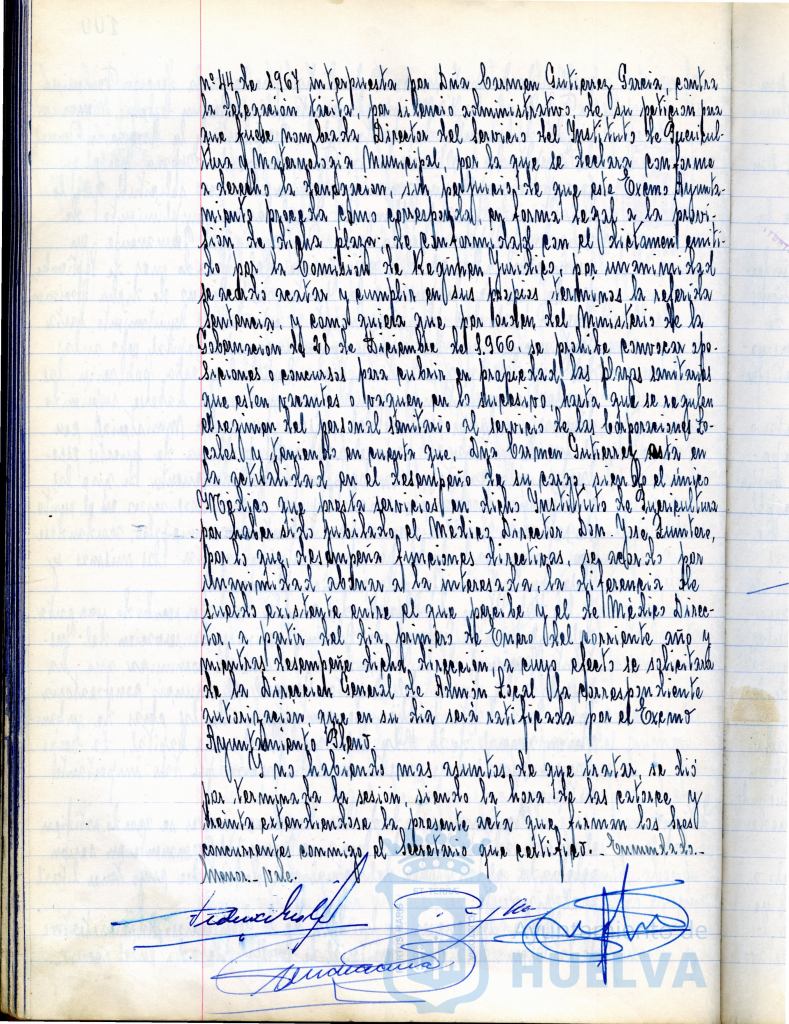 nº 44 de 1.967 interpuesta por Dña Carmen Gutierrez Garcia, contra
la delegación tacita, por silencio administrativo, de su peticion para
que fuese nombrada Director del servicio del Instituto de Puericul-
tura y Maternologia Municipal, por la que se declara conforme
a derecho la fundacion, sin perjuicio de que este Excmo Ayunta-
miento proceda como corresponda, en forma legal a la provi-
sion de dicha plaza; de conformidad con el dictamen emiti-
do por la Comision de Regimen Juridico, por unanimidad
se acordo acatar y cumplir en sus propios terminos la referida
sentencia, y como quiera que por orden del Ministerio de la
Gobernacion de 28 de Diciembre del 1.966 se prohibe convocar opo-
siciones o concursos para cubrir en propiedad las plazas sanitarias
que esten vacantes o vaquen en lo sucesivo, hasta que se regulen
el regimen del personal sanitario al servicio de las Corporaciones Lo-
cales y teniendo en cuenta que, Dña Carmen Gutierrez esta en
la actualidad en el desempeño de su cargo, siendo el unico
Médico que presta servicios en dicho Instituto de Puericultura
por haber sido jubilado el Médico Director Don José Quintero,
por lo que, desempeña funciones directivas, se acordo por
unanimidad abonar a la interesada, la diferencia de
sueldo existente entre el que percibe y el de Médico Direc-
tor, a partir del dia primero de Enero del corriente año y
mientras desempeñe dicha direccion, a cuyo efecto se solicitara
de la Direccion General de Admón Local la correspondiente
autorizacion, que en su dia será ratificada por el Excmo
Ayuntamiento Pleno.
Y no habiendo mas asuntos de que tratar, se dió
por terminada la sesión, siendo la hora de las catorce y
treinta extendiendose la presente acta que firman los Sres
concurrentes conmigo el Secretario que certifico.- Enmendado-
Menor- Vale.
Ayuntamiento de
HUELVA